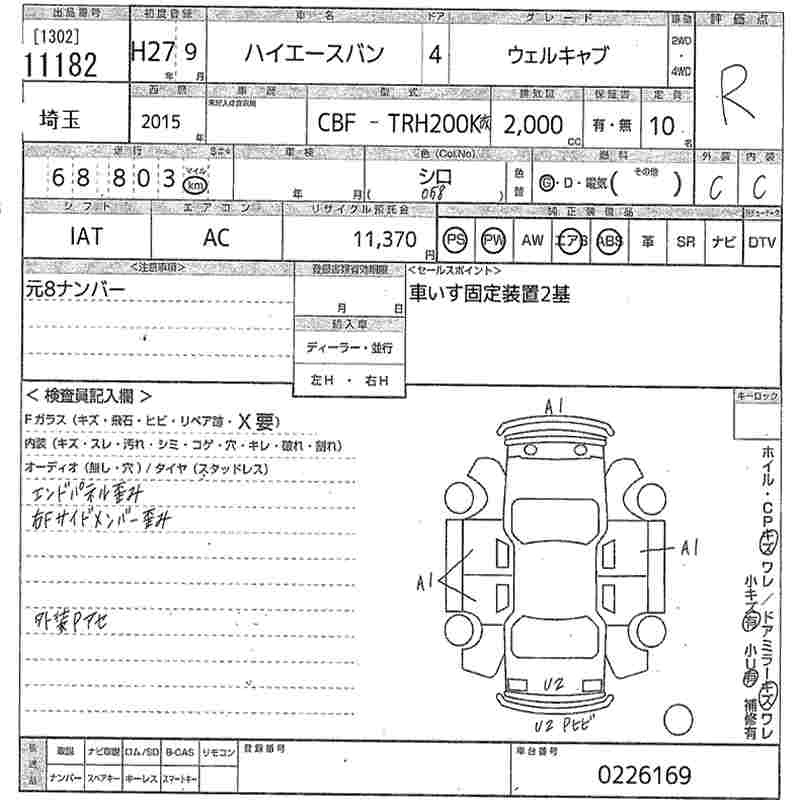 出品番号 初度登録 車名 ドア グレード 駆動 評価点
[1302]
11182 H27年 9月 ハイエースバン 4 ウェルキャブ 2WD・4WD R
埼玉 西暦 車歴 型式 排気量 保証書 定員
2015年 CBF - TRH200K改 2,000cc 有・無 10名
走行 車検 色(Col.No) 燃料 外装 内装
68803 マイル km 年 月 シロ ( 058 ) 色替 G・D・電気( その他 ) C C
シフト エアコン リサイクル預託金 純正装備品
IAT AC 11,370円 PS PW AW エアB ABS 革 SR ナビ DTV
<注意事項> 登録出球有効期限 <セールスポイント>
元8ナンバー 月 日 車いす固定装置2基
輸入車
ディーラー・並行
左H ・ 右H
< 検査員記入欄 > キーロック
Fガラス (キズ・飛石・ヒビ・リペア跡・X要)
内装 (キズ・スレ・汚れ・シミ・コゲ・穴・キレ・破れ・割れ)
オーディオ (無し・穴) / タイヤ (スタッドレス)
エンドパネル歪み
右Fサイドメンバー歪み
外装Pアセ
A1
A1
A1
U2
U2 Pヒビ
ホイル・CPキズ ワレ / ドアミラーキズ ワレ
小キズ有 小U有 補修有
後送品 取説 ナビ取説 ロム/SD B-CAS リモコン 登録番号 車台番号
ナンバー スペアキー キーレス スマートキー 0226169